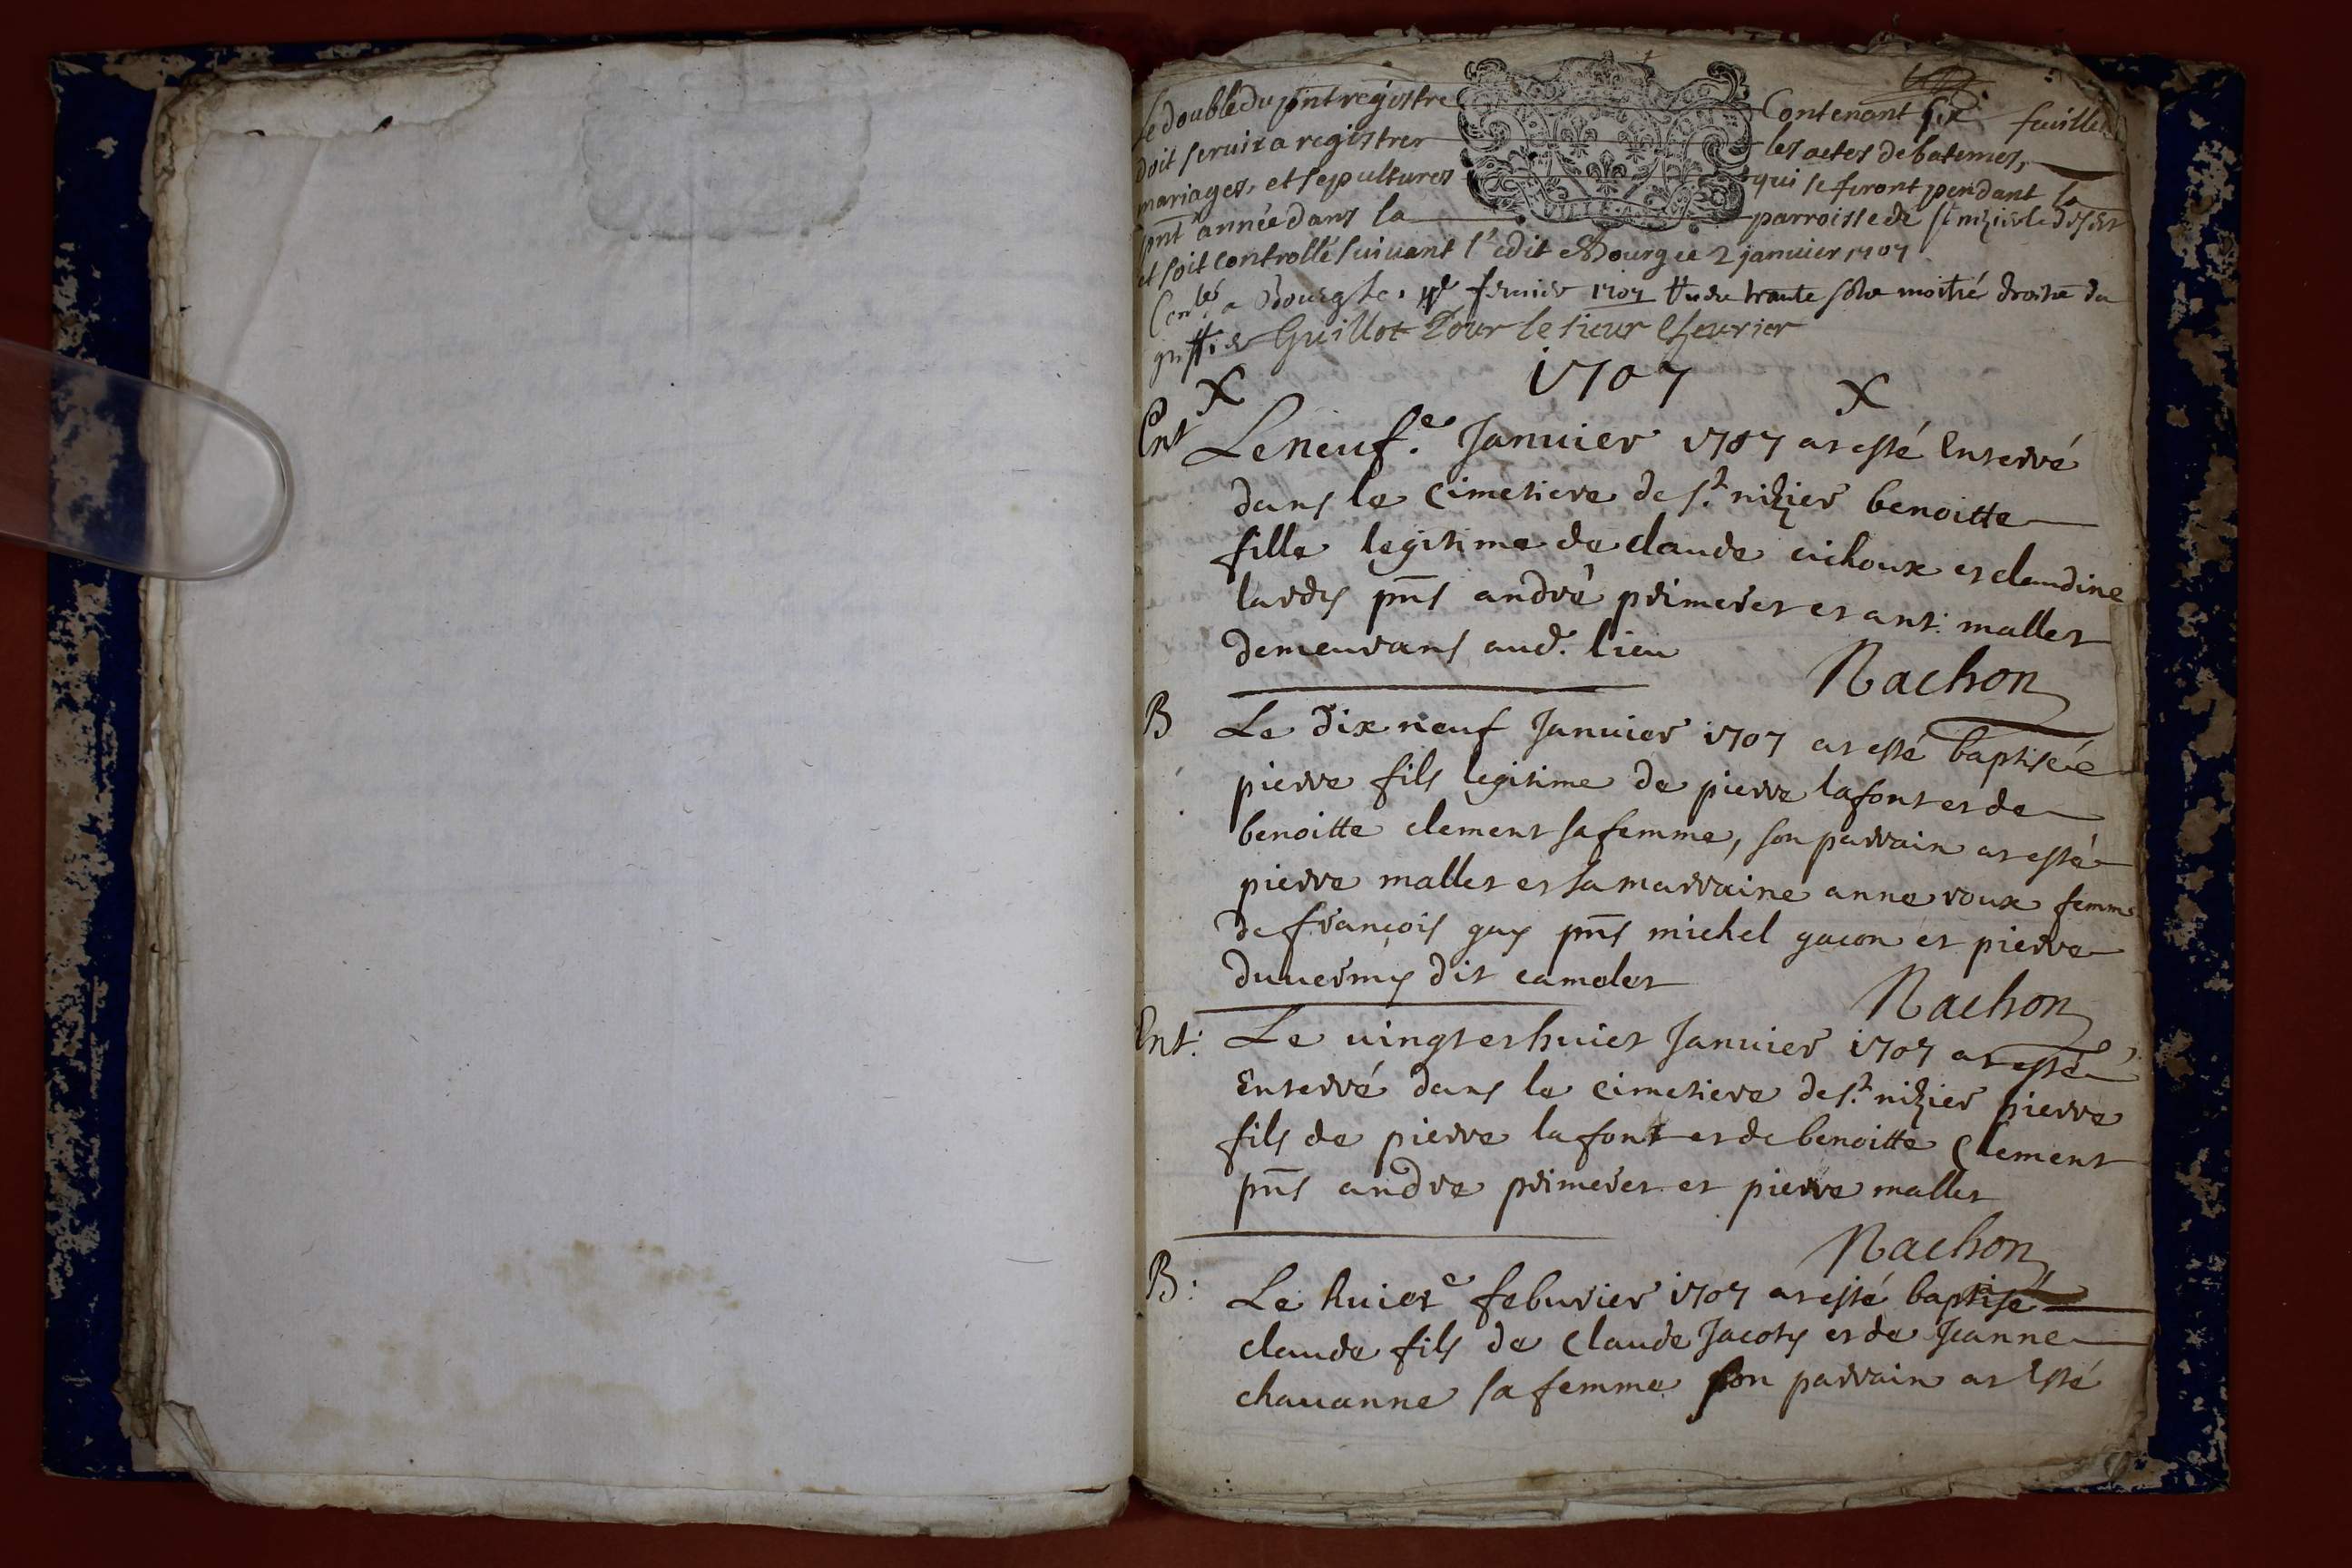 Le double du pñt registre Contenant six feuillets
doit seruir a registrer les actes de batemes,
mariages, et sepultures qui se feront pendant la
pñt année dans la parroisse de st nizier le desert
et soit controllé suiuant l'edit a Bourg ce 2 januier 1707
Conlé a Bourg le feurier 1707 trante sols moitié droits du
greffier Guillot Pour le sieur Cheurier
1707
X X
Ent Le neuf.e Januier 1707 at esté Enterré
dans le Cimetiere de st. nizier benoitte
fille legitime de claude uichoux et claudine
lardy pñts andré primeret et ant: mallet
demeurans aud. lieu
Nachon
B Le dix neuf Januier 1707 at esté baptisée
pierre fils legitime de pierre lafont et de
benoitte clement sa femme, son parrain at esté
pierre mallet et sa marraine anne roux femme
de françois guy pñts michel gacon et pierre
duuerny dit camolet
Nachon
Ent: Le uingt et huict Januier 1707 at esté
Enterré dans le Cimetiere de st. nizier pierre
fils de pierre lafont et de benoitte Clement
pñts andre primeret et pierre mallet
Nachon
B: Le huicte feburier 1707 at esté baptisé
claude fils de Claude Jacoty et de Jeanne
chauanne sa femme son parrain at Esté